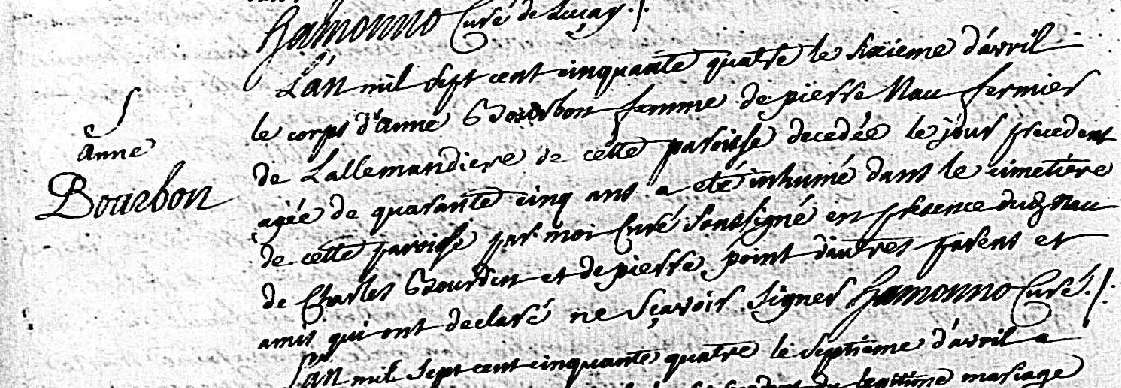 hamonno Curé de Luçay ./.
L'an mil sept cent cinquante quatre le sixieme d'avril
S
le corps d'anne Bourbon femme de pierre Nau fermier
anne
de Lallemandiere de cette paroisse decedée le jour precedent
Bourbon
agée de quarante cinq ans a eté inhumé dans le cimetiere
de cette paroisse par moi Curé soussigné en presence dudt Nau
de Charles Bourdin et de pierre point d'autres parens et
amis qui ont declaré ne sçavoir signer hamonno Curé ./.
L'an mil sept cent cinquante quatre le septieme d'avril a
legitime mariage